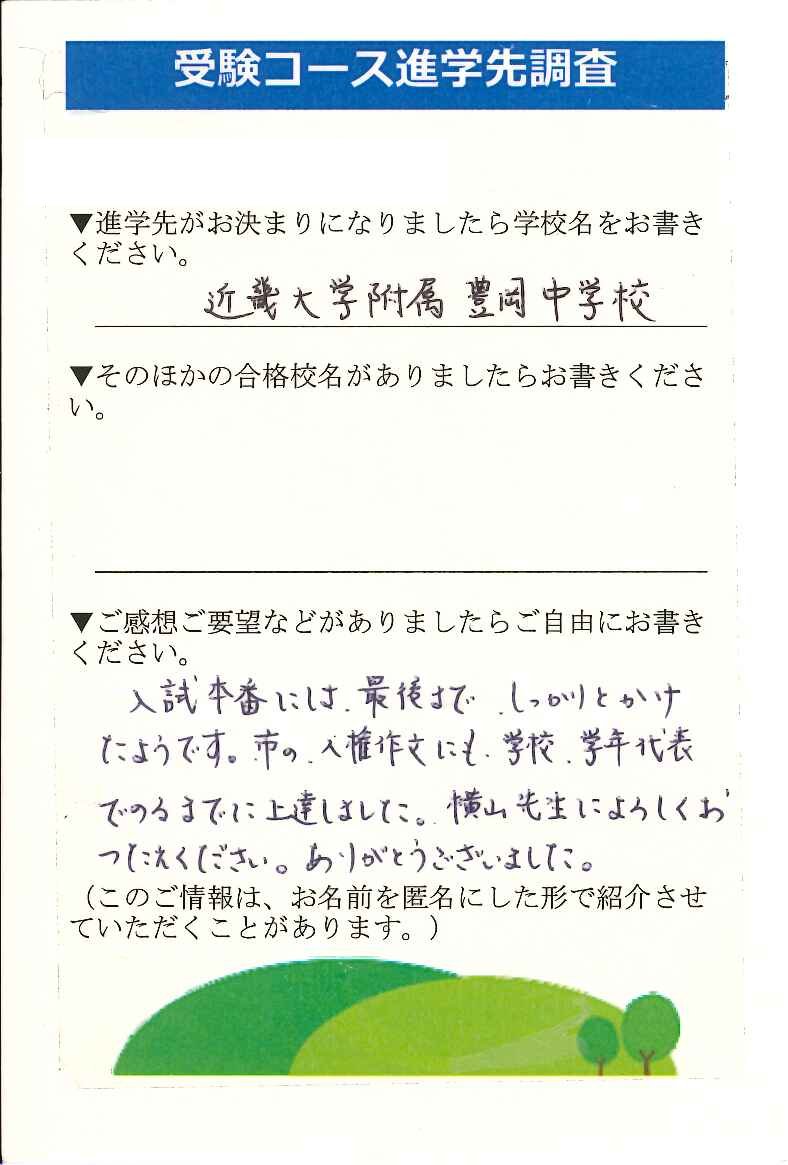 受験コース進学先調査
▼進学先がお決まりになりましたら学校名をお書き
ください。
近畿大学附属豊岡中学校
▼そのほかの合格校名がありましたらお書きくださ
い。
▼ご感想ご要望などがありましたらご自由にお書き
ください。
入試本番には、最後まで、しっかりとかけ
たようです。市の、人権作文にも、学校、学年代表
でのるまでに上達しました。横山先生によろしくお
つたえください。ありがとうございました。
（このご情報は、お名前を匿名にした形で紹介させ
ていただくことがあります。）